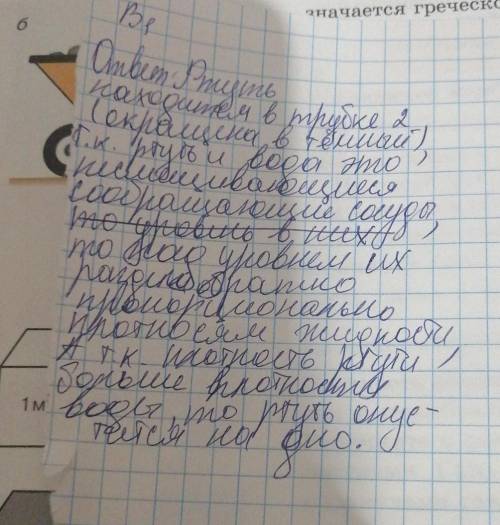 значается греческо
б
В₁
Ответ: Ртуть
находится в трубке 2
(окрашена в тёмный),
т.к. ртуть и вода это
несмешивающиеся
сообщающие сосуды,
то уровень в них
то над уровнем их
раздела обратно
пропорционально
плотносям жидкости,
А т.к. плотность ртути
больше плотности
воды, то ртуть опус-
тется на дно.
1 м